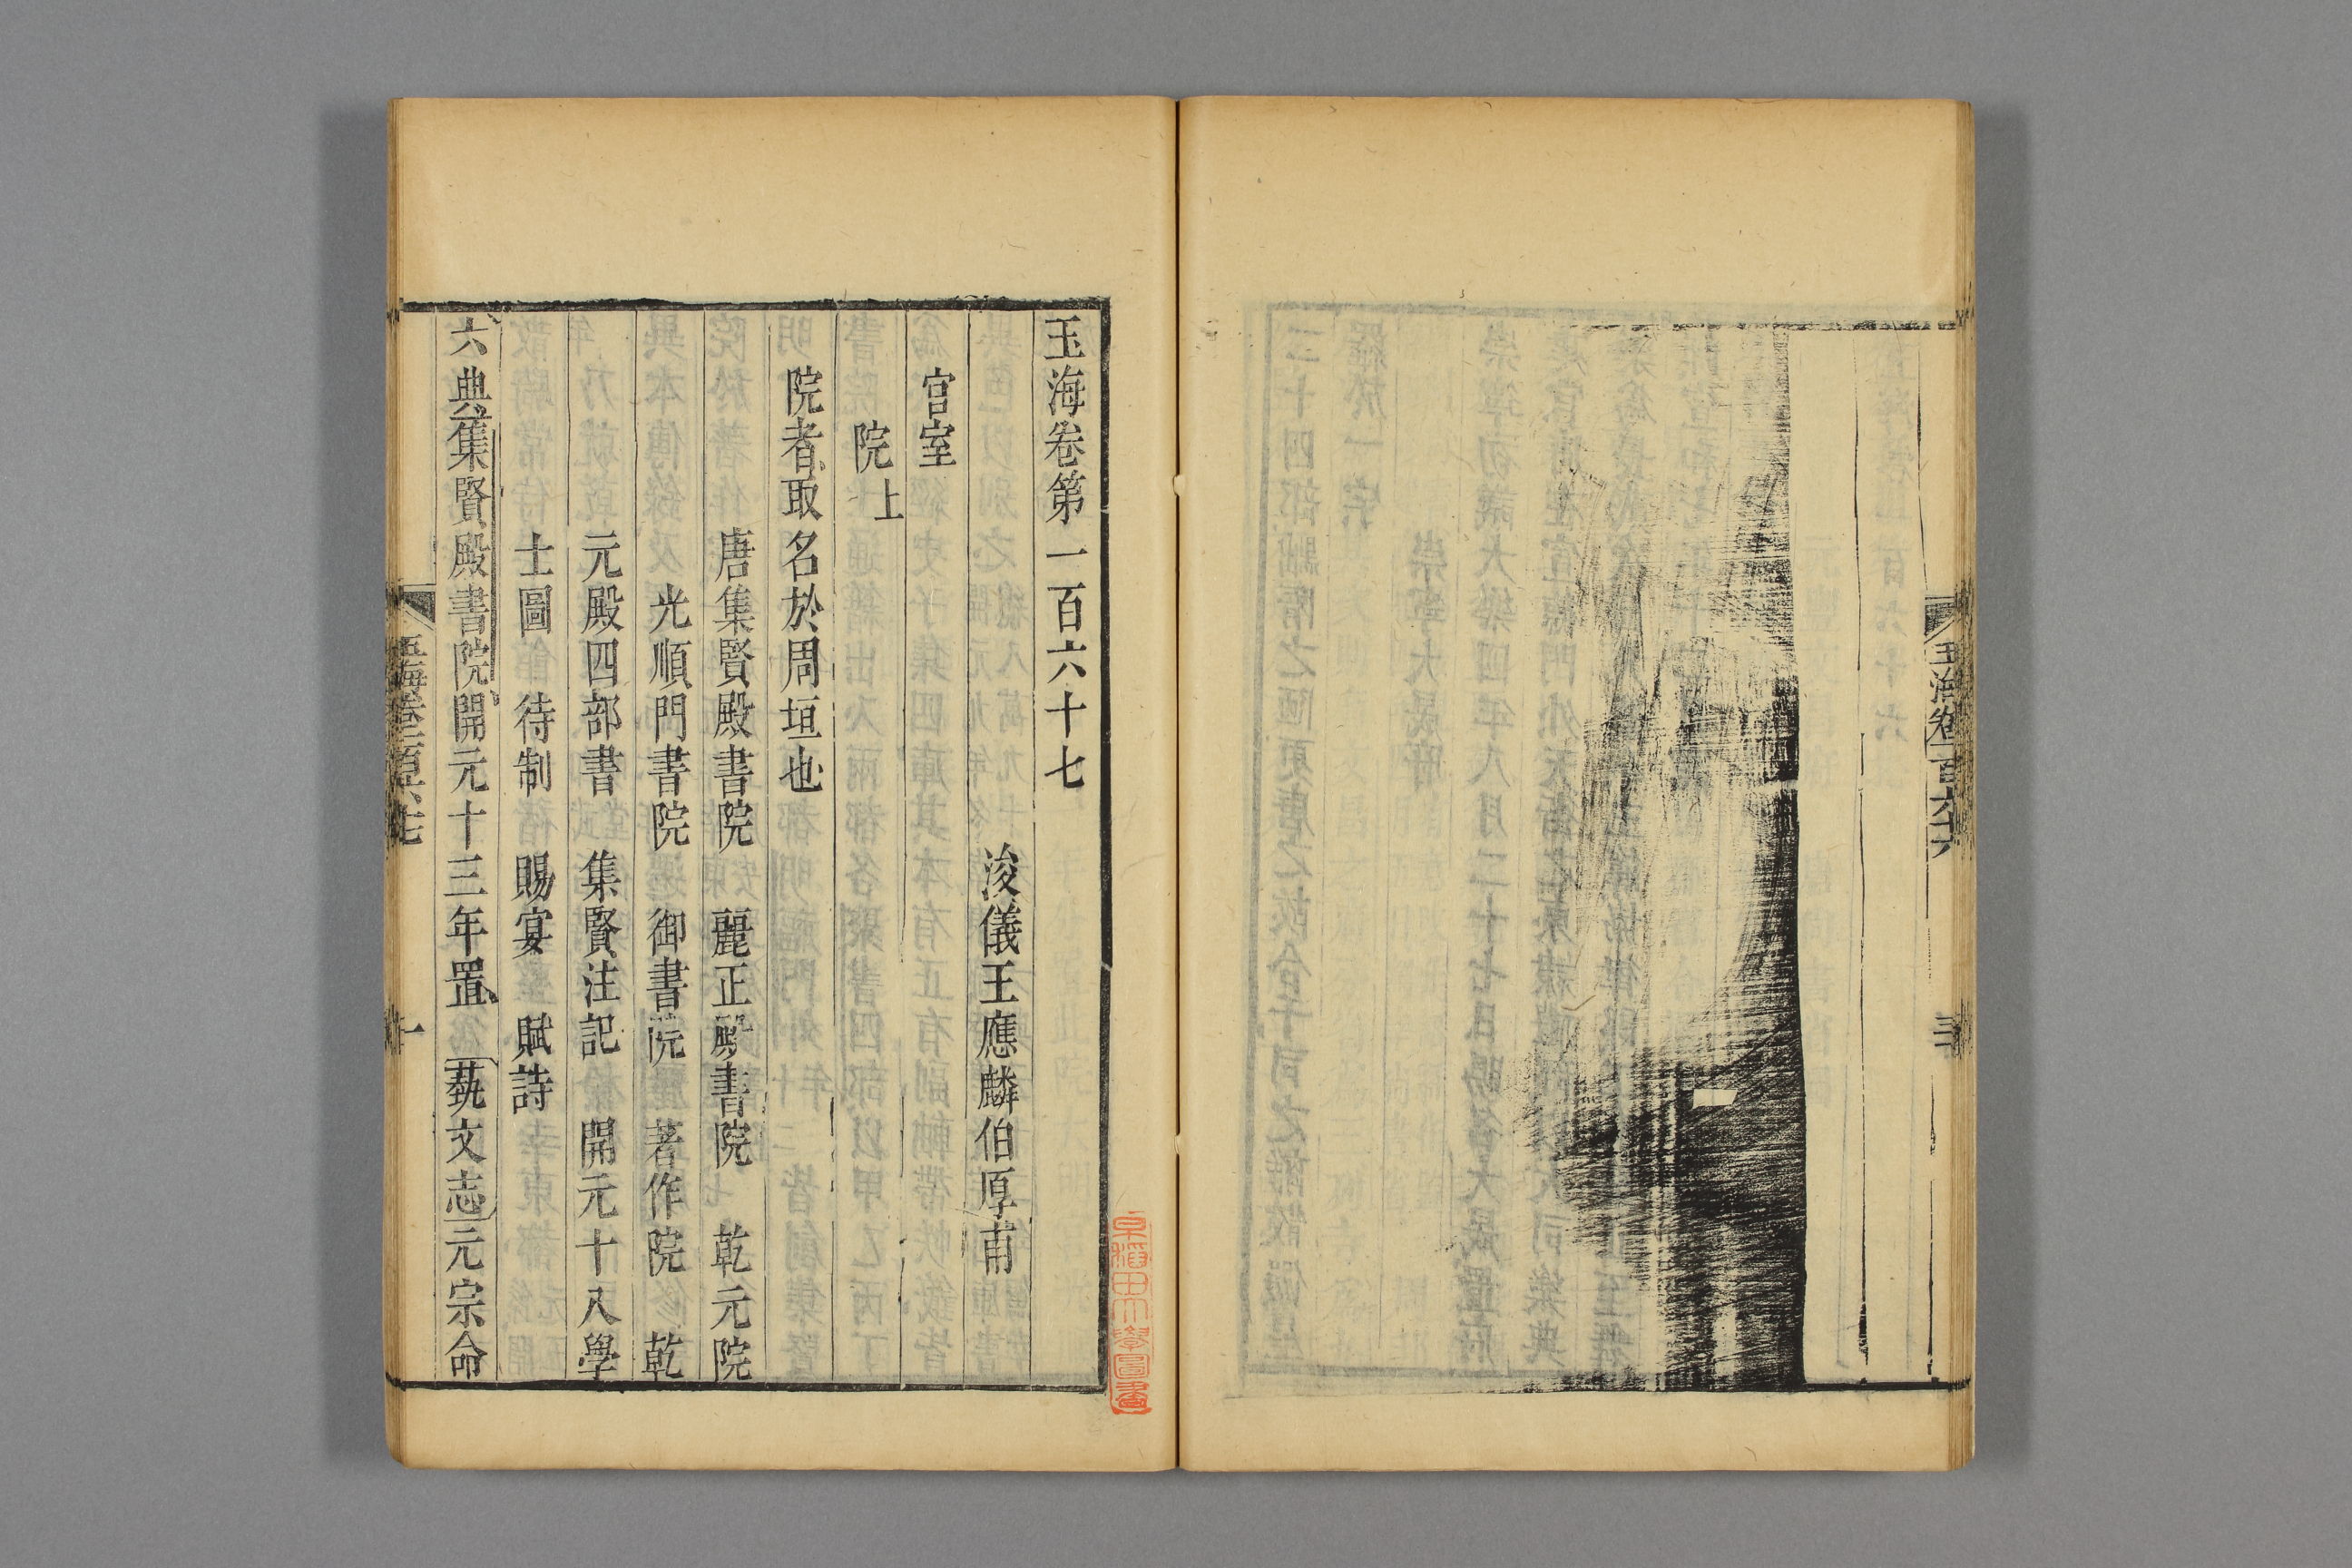 玉海卷一百六十六
玉海卷第一百六十七
浚儀王應麟伯厚甫
宮室
院上
院者取名於周垣也
唐集賢殿書院 麗正殿書院 乾元院
光順門書院 御書院 著作院 乾
元殿四部書 集賢注記 開元十八學
士圖 待制 賜宴 賦詩
六典集賢殿書院開元十三年置 藝文志元宗命
玉海卷一百六十七
一
早稻田大學圖書